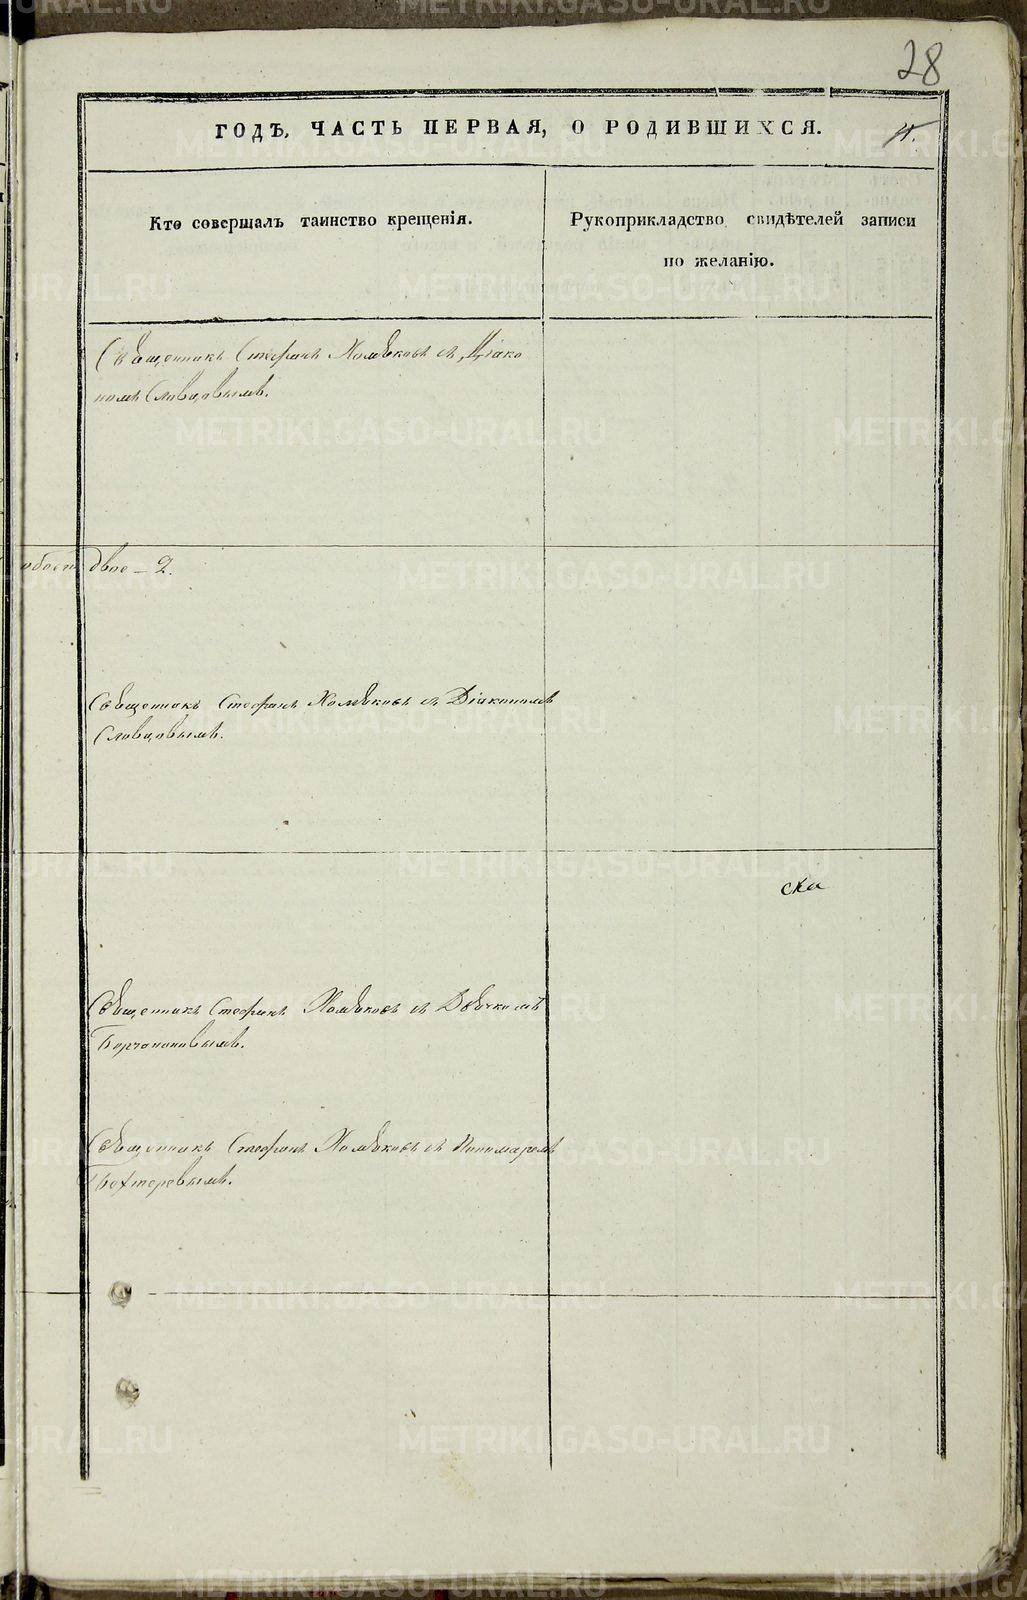 28
ГОДЪ, ЧАСТЬ ПЕРВАЯ, О РОДИВШИХСЯ.
Кто совершалъ таинство крещенія.
Рукоприкладство свидѣтелей записи
по желанію.
Священникъ Стефанъ Хомяковъ съ Діако
номъ Словцовымъ.
обоего двое - 2.
Священникъ Стефанъ Хомяковъ съ Діакономъ
Словцовымъ.
ска
Священникъ Стефанъ Хомяковъ съ Дьячкомъ
Священникъ Стефанъ Хомяковъ съ Пономаремъ
Бехтеревымъ.
METRIKI.GASO-URAL.RU